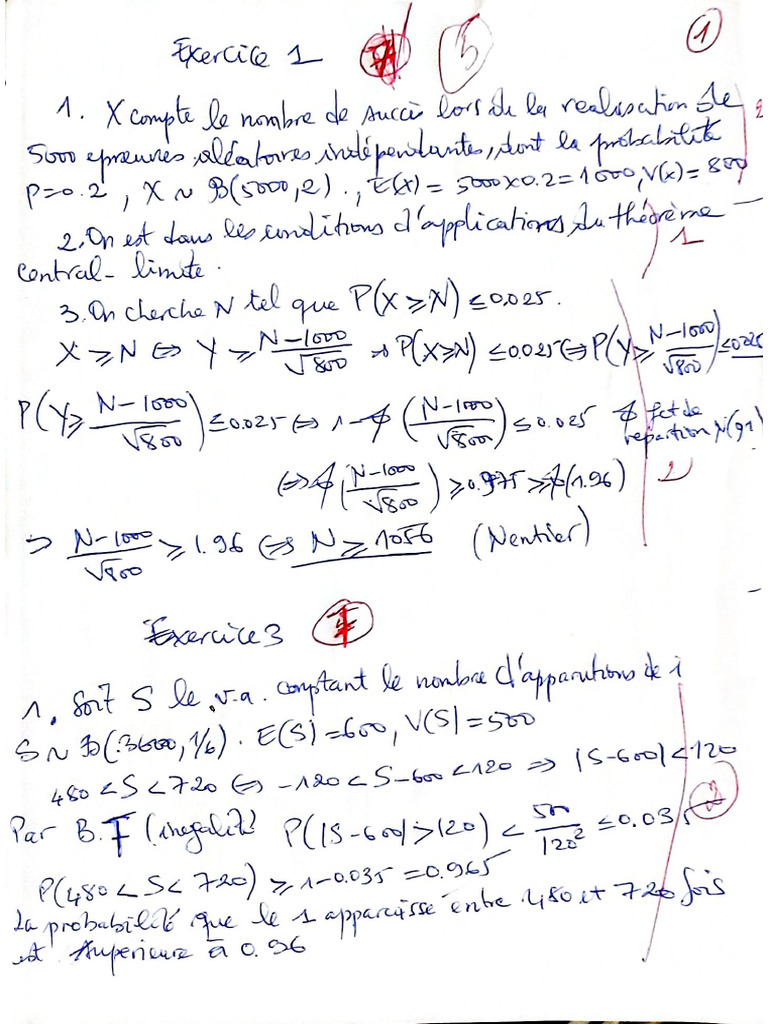 Exercice 1 5 1
1. X compte le nombre de succès lors de la realisation de
5000 epreuves aléatoires indépendantes, dont la probabilité
P=0.2, X ~ B(5000,2)., E(x) = 5000x0.2=1000, V(x)=800
2. On est dans les conditions d'applications du théorème
central-limite. 1
3. On cherche N tel que P(X ≥ N) ≤ 0.025.
X ≥ N ⇔ Y ≥ (N-1000)/√800 → P(X≥N) ≤ 0.025 ⇔ P(Y ≥ (N-1000)/√800) ≤ 0.025
P(Y ≥ (N-1000)/√800) ≤ 0.025 ⇔ 1-ϕ((N-1000)/√800) ≤ 0.025 ϕ fct de
repartition N(0,1)
⇔ ϕ((N-1000)/√800) ≥ 0.975 ≥ ϕ(1.96) 2
⇒ (N-1000)/√800 ≥ 1.96 ⇔ N ≥ 1056 (N entier)
Exercice 3
1. Soit S le v.a. comptant le nombre d'apparutions de i
S ~ B(3600, 1/6). E(S)=600, V(S)=500
480 < S < 720 ⇔ -120 < S-600 < 120 ⇒ |S-600| < 120
Par B.T (inegalité) P(|S-600| > 120) < 500/120² ≤ 0.035
P(480 < S < 720) ≥ 1-0.035 = 0.965
La probabilité que le 1 apparaisse entre 480 et 720 fois
est superieure à 0.96